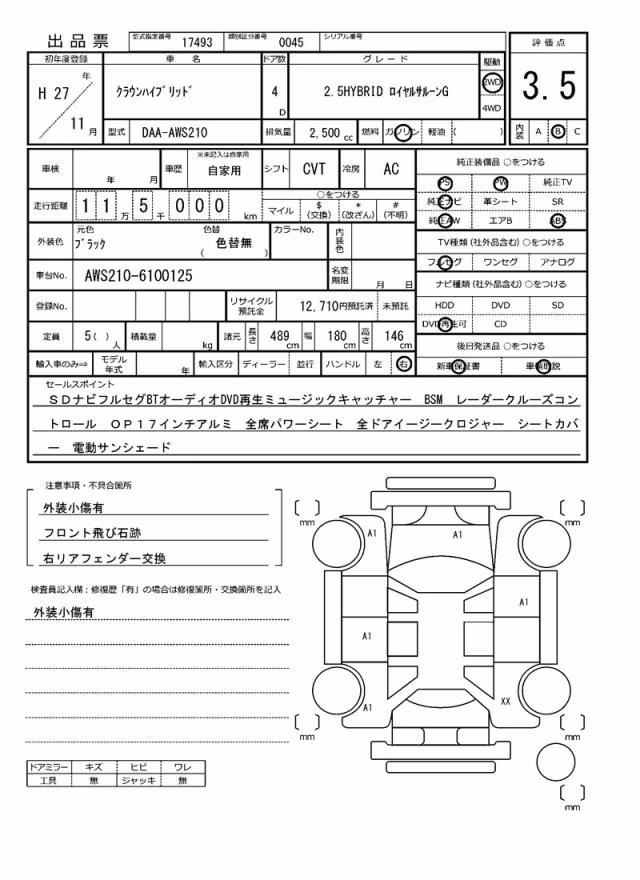 出品票 型式指定番号 17493 類別区分番号 0045 シリアル番号
評価点
3.5
初年度登録 車名 ドア数 グレード 駆動
H 27 年 クラウンハイブリッド 4 D 2.5HYBRID ロイヤルサルーンG 2WD
4WD
11 月 型式 DAA-AWS210 排気量 2,500 cc 燃料 ガソリン 軽油 ( ) 内装 A B C
車検 年 月 車歴 ※未記入は自家用 自家用 シフト CVT 冷房 AC
走行距離 1 1 万 5 千 0 0 0 km ○をつける
マイル $(交換) *(改ざん) #(不明)
外装色 元色 ブラック 色替 ( 色替無 ) カラーNo. 内装色
車台No. AWS210-6100125 名変期限 月 日
登録No. リサイクル預託金 12,710円預託済 未預託
定員 5( ) 人 積載量 kg 諸元 長さ 489 cm 幅 180 cm 高さ 146 cm
輸入車のみ⇨ モデル年式 年 輸入区分 ディーラー 並行 ハンドル 左 右
純正装備品 ○をつける
PS PW 純正TV
純正ナビ 革シート SR
純正AW エアB ABS
TV種類 (社外品含む) ○をつける
フルセグ ワンセグ アナログ
ナビ種類 (社外品含む) ○をつける
HDD DVD SD
DVD再生可 CD
後日発送品 ○をつける
新車保証書 車輌取説
セールスポイント
SDナビフルセグBTオーディオDVD再生ミュージックキャッチャー BSM レーダークルーズコン
トロール OP17インチアルミ 全席パワーシート 全ドアイージークロジャー シートカバ
ー 電動サンシェード
注意事項・不具合箇所
外装小傷有
フロント飛び石跡
右リアフェンダー交換
検査員記入欄：修復歴「有」の場合は修復箇所・交換箇所を記入
外装小傷有
ドアミラー キズ ヒビ ワレ
工具 無 ジャッキ 無
[ ] mm [ ] mm
A1 A1
A1
A1
A1 XX
[ ] mm [ ] mm
[ ] mm